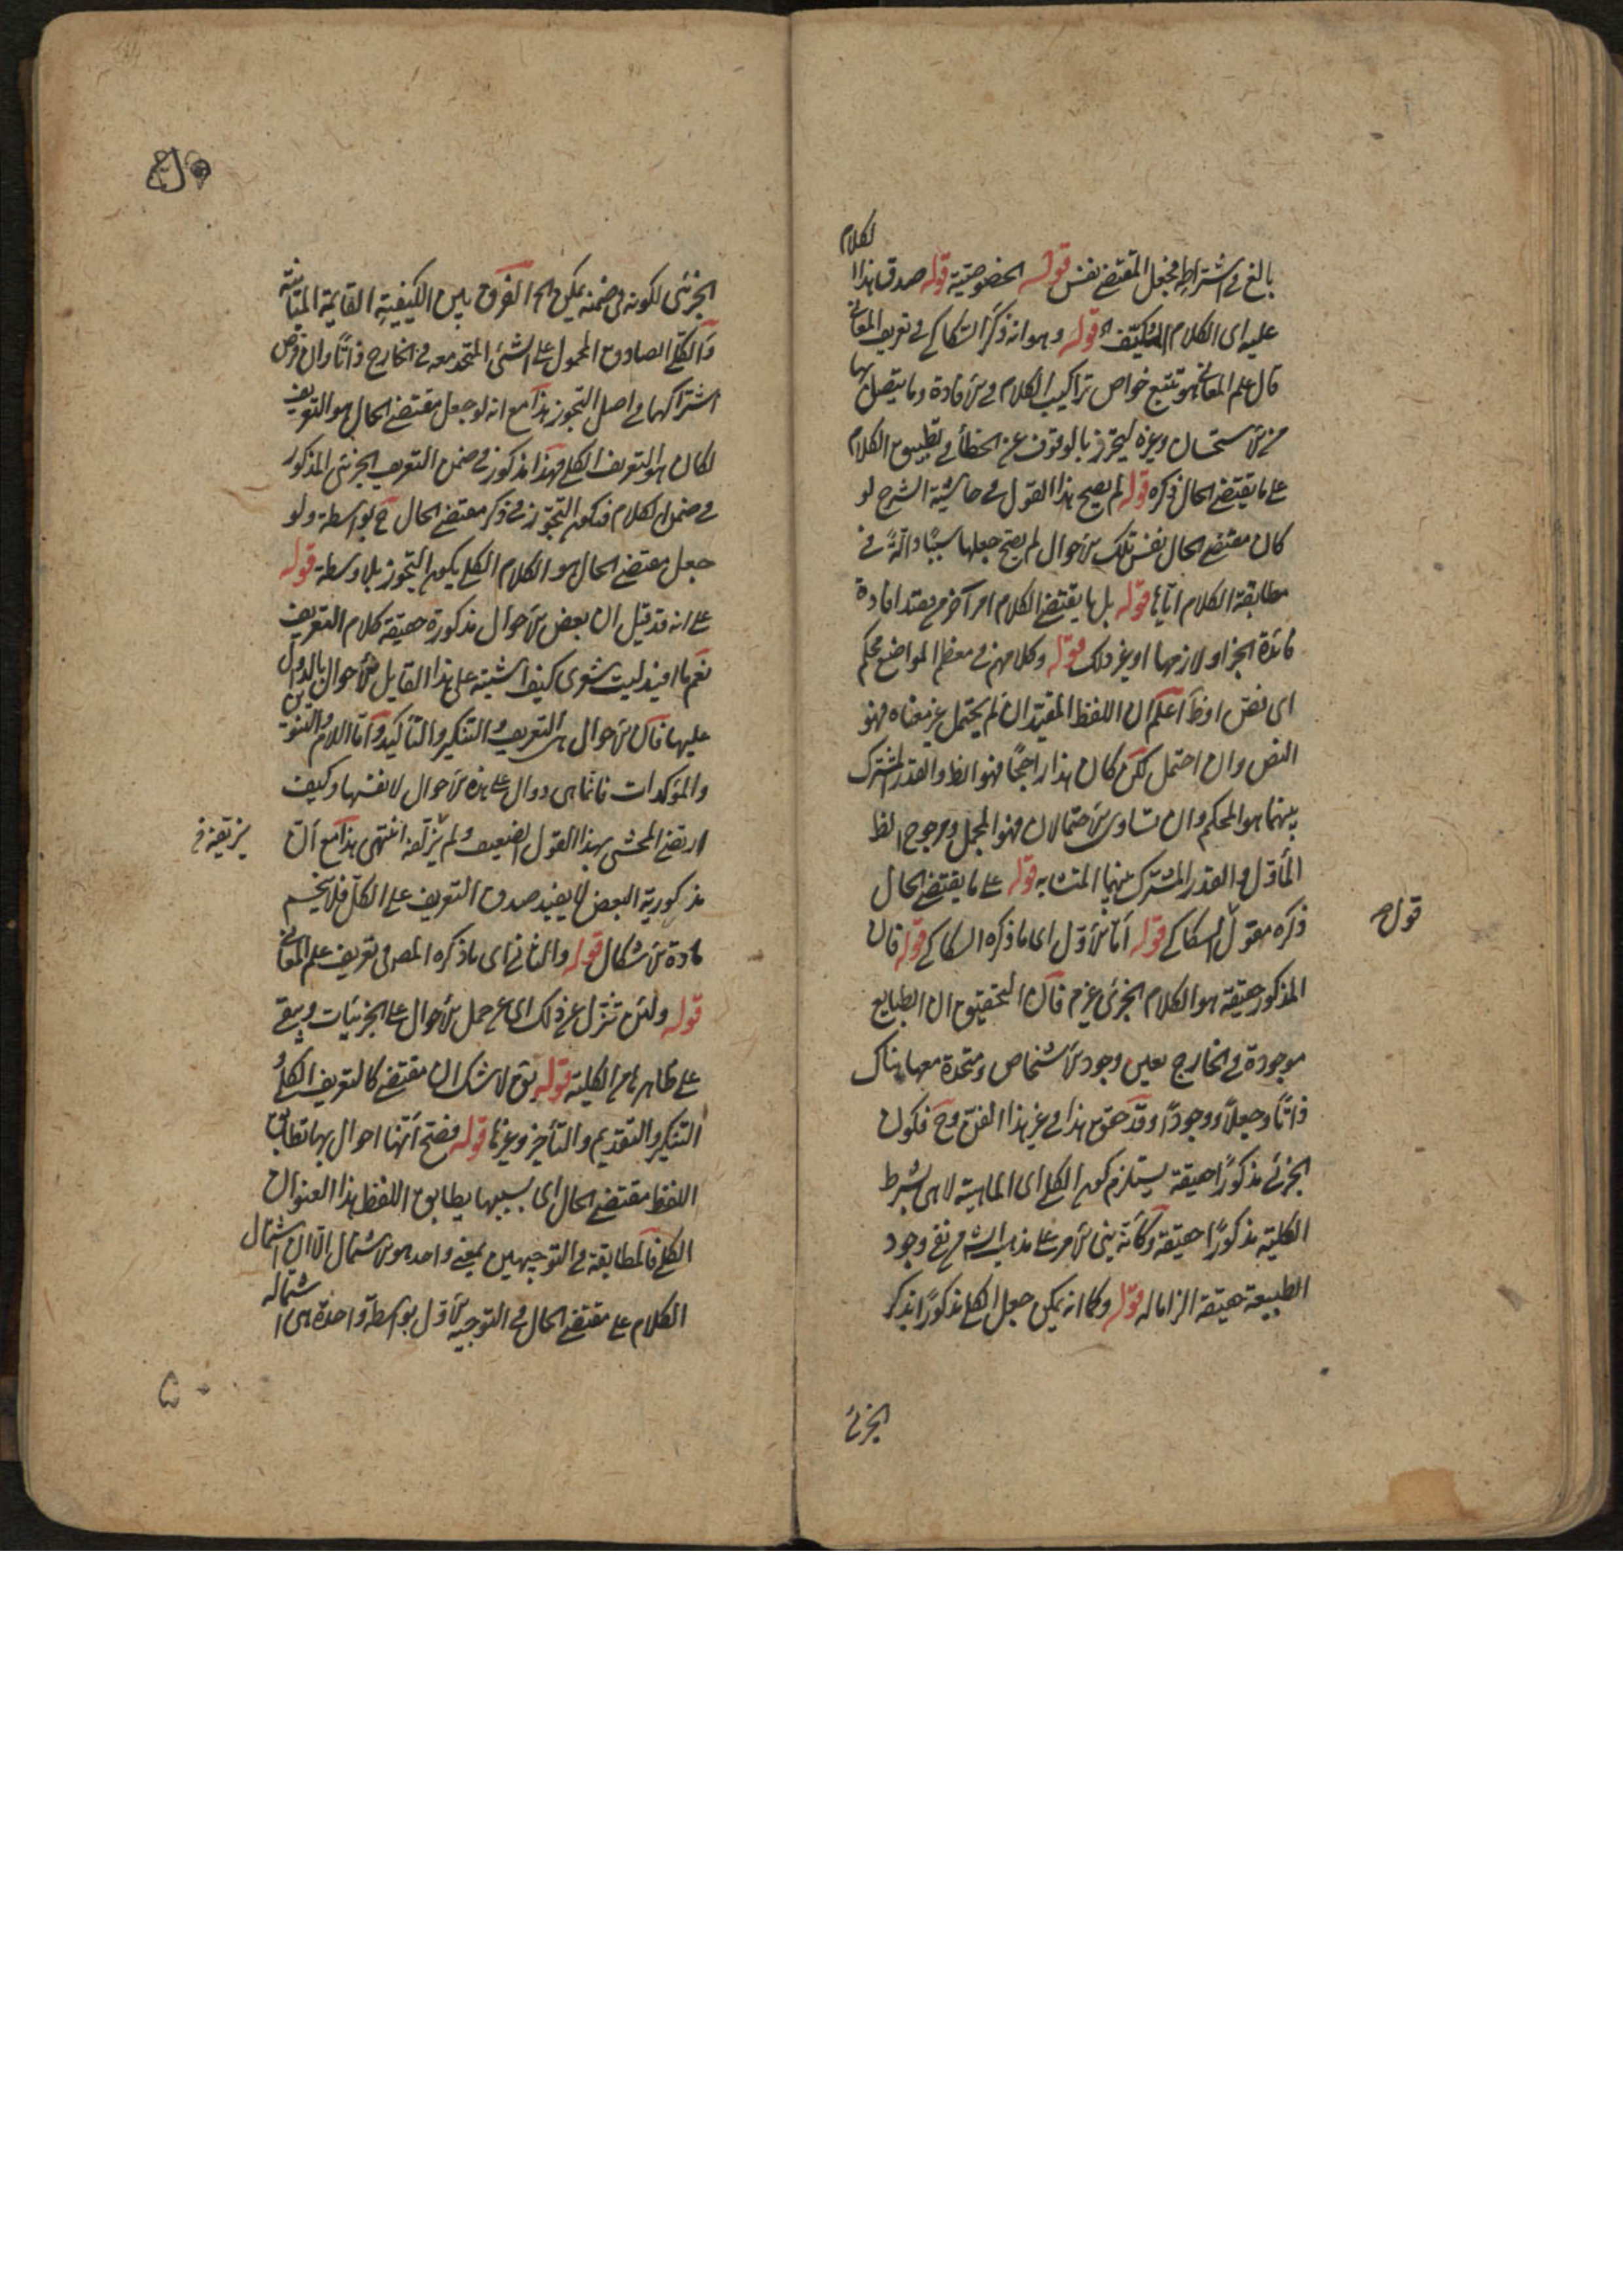 بالغ في اشتراطه فجعل المقتضى نفس قوله الخصوصية قوله صدق هذا الكلام
عليه اى الكلام المكيف قوله وهو انه ذكر السكاكى فى تعريف المعانى
قال علم المعانى هو تتبع خواص تراكيب الكلام فى الافادة وما يتصل بها
من الاستحسان وغيره ليحترز بالوقوف عن الخطأ فى تطبيق الكلام
على ما يقتضى الحال ذكره قوله لم يصح هذا القول فى حاشية الشرح لو
كان مقتضى الحال نفس تلك الاحوال لم يصح جعلها سببا وآلة فى
مطابقة الكلام اياها قوله بل ما يقتضى الكلام امر آخر بعد افادة
فائدة الخبر او لازمها او غير ذلك قوله وكلامهم فى معظم المواضع محكم
اى نص او ظ اعلم ان اللفظ المقيد ان لم يحتمل غير معناه فهو
النص وان احتمل لكن كان هذا راجحًا فهو الظ والقدر المشترك
بينهما هو المحكم وان تساوى الاحتمالان فهو المجمل ومرجوح الظ
المأوّل والقدر المشترك بينهما المتشابه قوله على ما يقتضى الحال
ذكره مقول السكاكى قوله اما الاوّل اى ما ذكره السكاكى قوله فان
قول
المذكور حقيقة هو الكلام الجزئى فان التحقيق ان الطبايع
موجودة فى الخارج بعين وجود الاشخاص ومتحدة معها هناك
ذاتًا وجعلًا ووجودًا وقد حقق هذا فى غير هذا الفن وح فكون
الجزئى مذكورًا حقيقة يستلزم كون الكلى اى الماهية لا هى بشرط
الكلية مذكورًا حقيقة وكأنه بنى الامر على مذهب الش من نفى وجود
الطبيعة حقيقة الزاما له قوله وكما انه يمكن جعل الكلى مذكورًا بذكر
الجزئى
الجزئى لكونه فى ضمنه يمكن الخ الفرق بين الكيفية القايمة المباينة
والكلى الصادق المحمول على الشئ المتحد معه فى الخارج ذاتًا وان فرض
اشتراكهما فى اصل التجوز هذا مع انه لو جعل مقتضى الحال هو التعريف
لكان هو التعريف الكلى فهذا مذكور فى ضمن التعريف الجزئى المذكور
فى ضمن الكلام فيكون التجوز فى ذكر مقتضى الحال ح بواسطة ولو
جعل مقتضى الحال هو الكلام الكلى يكون التجوز بلا وسطة قوله
على انه قد قيل ان بعض الاحوال مذكورة حقيقة كلام التعريف
نعم ما افيد ليت شعرى كيف اشتبه على هذا القايل الاحوال بالدوال
عليها فان الاحوال هى التعريف والتنكير والتأكيد واما اللام والتنوين
والمؤكدات فانما هى دوال على هذه الاحوال لا نفسها وكيف
ارتضى المحشى بهذا القول الضعيف ولم يزيفه انتهى هذا مع ان
مذكورية البعض لا يفيد صدق التعريف على الكل فلا ينحسم
مادة الاشكال قوله والثانى اى ما ذكره المص فى تعريف علم المعانى
قوله ولئن تنزل عن ذلك اى عن حمل الاحوال على الجزئيات ويبقى
على ظاهرها من الكلية قوله يق لا شك ان مقتضى كالتعريف الكلى
التنكير والتقديم والتأخير وغيرها قوله فصح انها احوال بها تطابق
اللفظ مقتضى الحال اى بسببها يطابق اللفظ هذا العنوان
الكلى فالمطابقة فى التوجيهين بمعنى واحد هو الاشتمال الا ان اشتمال
الكلام على مقتضى الحال فى التوجيه الاول بوسطة واحدة هى اشتماله